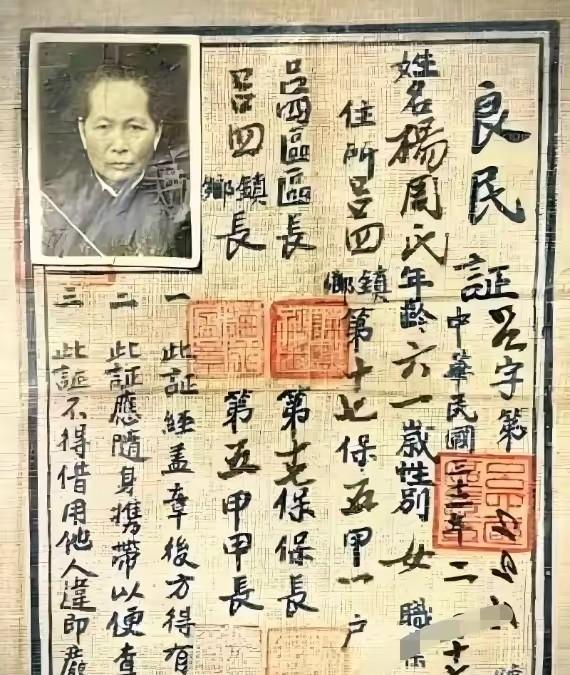 良民證呂字第
中華民國三十二年二十七
姓名楊周氏年齡六一歲性別女職業
住所呂四鄉鎮第十七保五甲一戶
呂四區區長
第十七保保長
呂四鄉鎮長
第五甲甲長
一 此証經盖章後方得有
二 此証應隨身携帶以便查
三 此証不得借用他人違即嚴